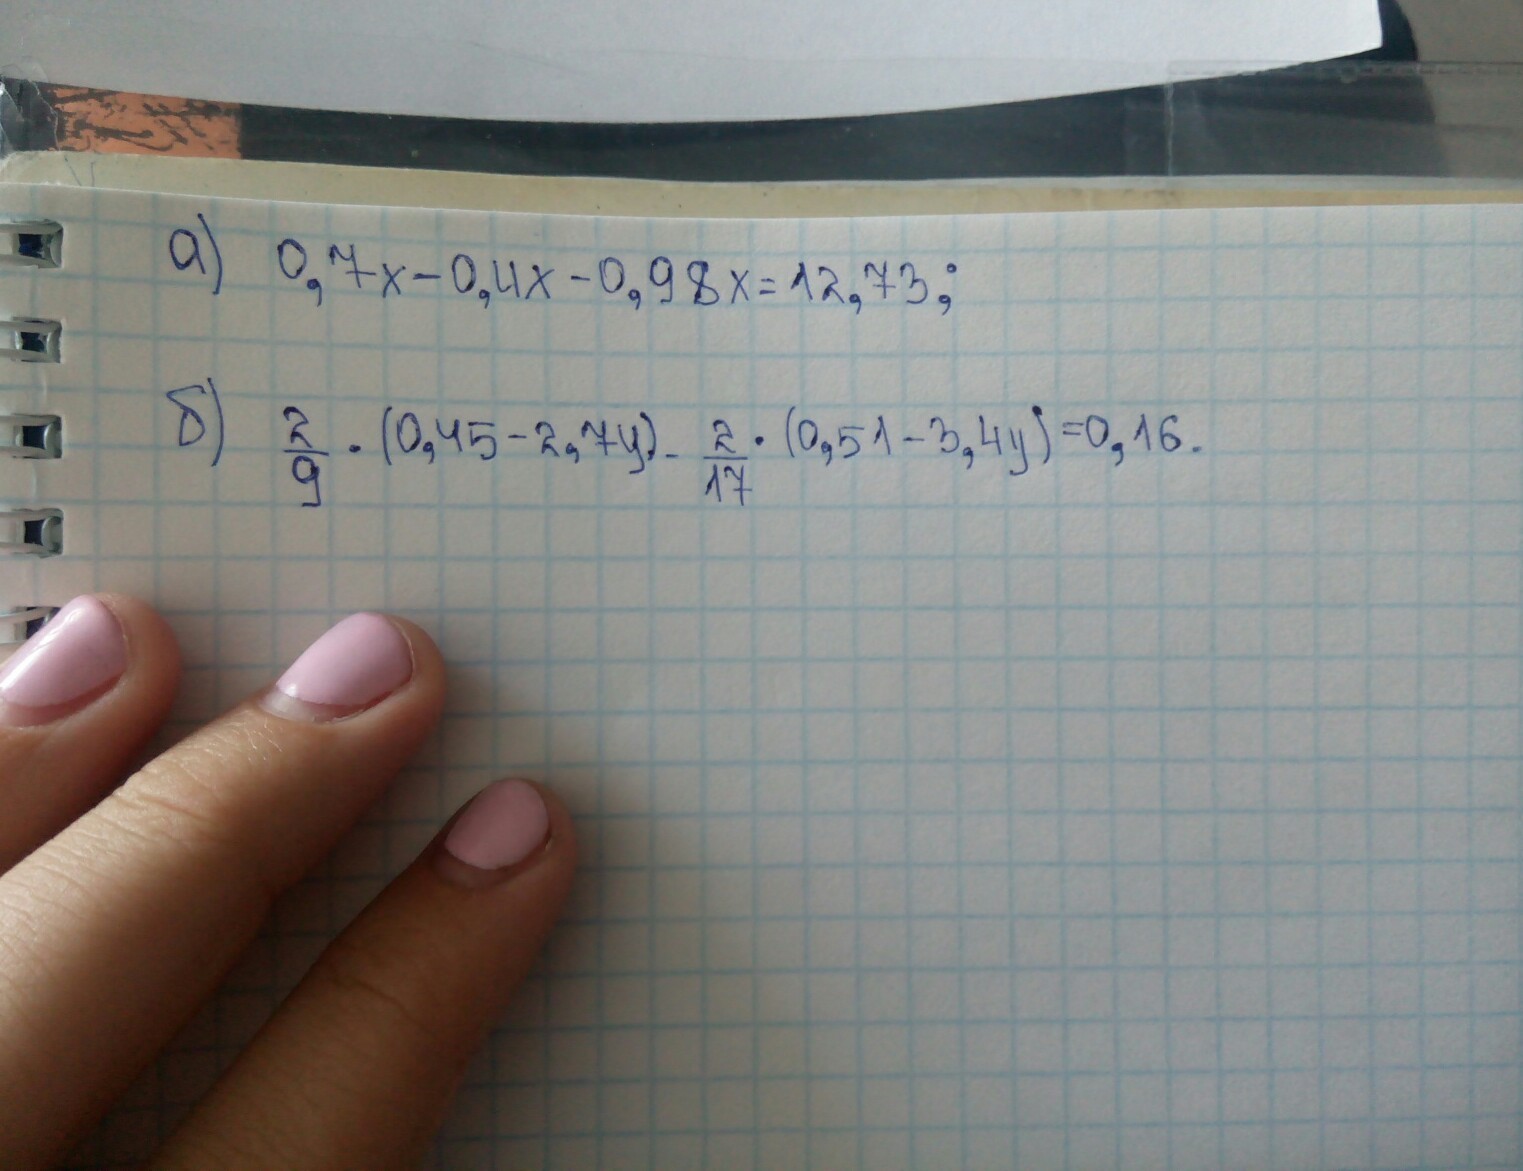 а) 0,7x-0,4x-0,98x=12,73;
б) 2/9 · (0,45-2,7y) - 2/17 · (0,51-3,4y)=0,16.